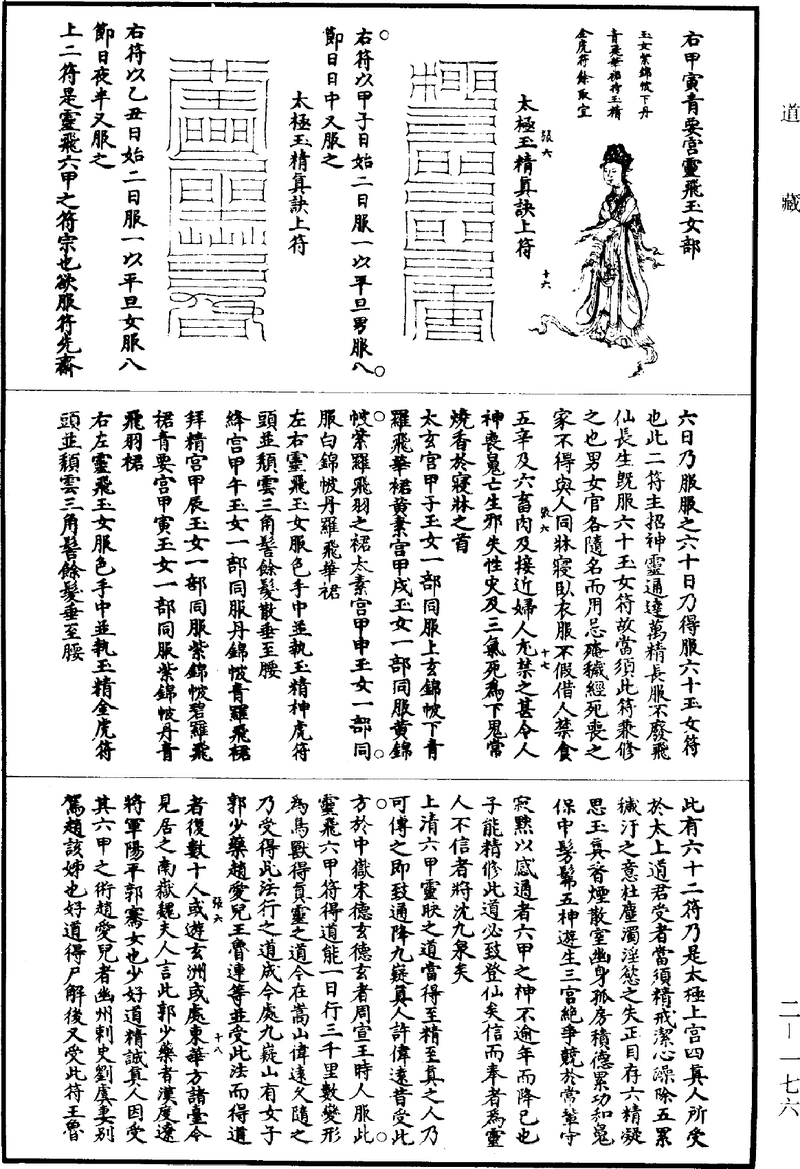 道藏
右甲寅青要宮靈飛玉女部
玉女紫錦帔下丹
青飛華裙持玉精
金虎符餘取宜
太極玉精真訣上符
張六
十六
右符以甲子日始二日服一以平旦男服八
節日日中又服之
太極玉精真訣上符
右符以乙丑日始二日服一以平旦女服八
節日夜半又服之
上二符是靈飛六甲之符宗也欲服符先齋
六日乃服服之六十日乃得服六十玉女符
也此二符主招神靈通達萬精長服不廢飛
仙長生既服六十玉女符故當須此符兼修
之也男女官各隨名而用忌淹穢經死喪之
家不得與人同牀寢臥衣服不假借人禁食
張六
十七
五辛及六畜肉及接近婦人尤禁之甚令人
神喪鬼亡生邪失性灾及三氣死為下鬼常
燒香於寢牀之首
太玄宮甲子玉女一部同服上玄錦帔下青
羅飛華裙黃素宮甲戌玉女一部同服黃錦
帔紫羅飛羽之裙太素宮甲申玉女一部同
服白錦帔丹羅飛華裙
左右靈飛玉女服色手中並執玉精神虎符
頭並頹雲三角髻餘髮散垂至腰
絳宮甲午玉女一部同服丹錦帔青羅飛裙
拜精宮甲辰玉女一部同服紫錦帔碧羅飛
裙青要宮甲寅玉女一部同服紫錦帔丹青
飛羽裙
右左靈飛玉女服色手中並執玉精金虎符
頭並頹雲三角髻餘髮垂至腰
此有六十二符乃是太極上宮四真人所受
於太上道君受者當須精戒潔心澡除五累
穢汙之意杜塵濁淫慾之失正目存六精凝
思玉真香煙散室幽身孤房積德累功和鬼
保中髣髴五神遊生三宮絕爭競於常輩守
寂默以感通者六甲之神不逾年而降已也
子能精修此道必致登仙矣信而奉者為靈
人不信者將沈九泉矣
上清六甲靈映之道當得至精至真之人乃
可傳之即致通降九嶷真人許偉遠昔受此
方於中嶽宋德玄德玄者周宣王時人服此
靈飛六甲符得道能一日行三千里數變形
為馬獸得真靈之道今在嵩山偉遠久隨之
乃受得此法行之道成今處九嶷山有女子
郭少藥趙愛兒王魯連等並受此法而得道
張六
十八
者復數十人或遊玄洲或處東華方諸臺今
見居之南嶽魏夫人言此郭少藥者漢度遼
將軍陽平郭騫女也少好道精誠真人因受
其六甲之術趙愛兒者幽州刺史劉虞妻別
駕趙該姊也好道得尸解後又受此符王魯
二一一七六